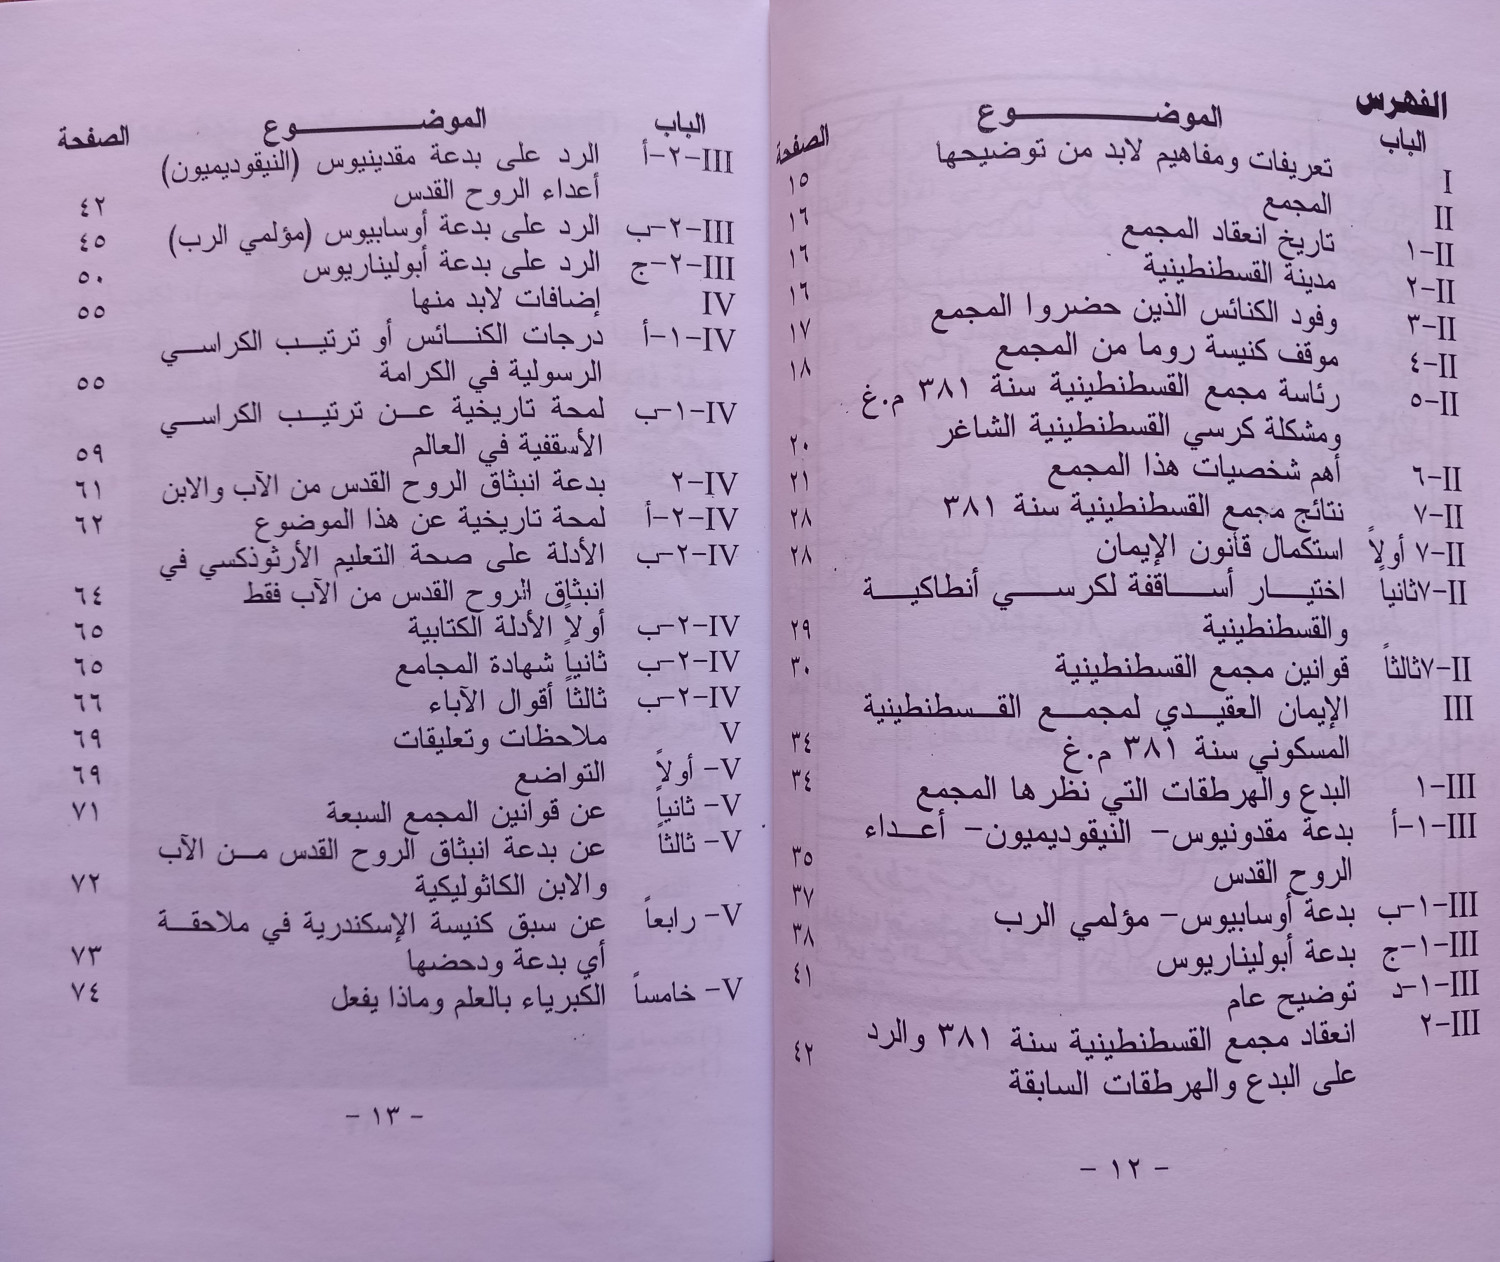 الفهرس
الباب الموضـــــــــوع الصفحة
I تعريفات ومفاهيم لابد من توضيحها ١٥
II المجمع ١٦
II-١ تاريخ انعقاد المجمع ١٦
II-٢ مدينة القسطنطينية ١٦
II-٣ وفود الكنائس الذين حضروا المجمع ١٧
II-٤ موقف كنيسة روما من المجمع ١٨
II-٥ رئاسة مجمع القسطنطينية سنة ٣٨١ م.غ
ومشكلة كرسي القسطنطينية الشاغر ٢٠
II-٦ أهم شخصيات هذا المجمع ٢١
II-٧ نتائج مجمع القسطنطينية سنة ٣٨١ ٢٨
II-٧ أولاً استكمال قانون الإيمان ٢٨
II-٧ثانياً اختيـــار أســـاقفة لكرســـي أنطاكيـــة
والقسطنطينية ٢٩
II-٧ثالثاً قوانين مجمع القسطنطينية ٣٠
III الإيمان العقيـدي لمجمـــع القـــسطنطينية
المسكوني سنة ٣٨١ م.غ ٣٤
III-١ البدع والهرطقات التي نظرها المجمع ٣٤
III-١-أ بدعة مقدونيوس- النيقوديميون- أعـداء
الروح القدس ٣٥
III-١-ب بدعة أوسابيوس- مؤلمي الرب ٣٧
III-١-ج بدعة أبوليناريوس ٣٨
III-١-د توضيح عام ٤١
III-٢ انعقاد مجمع القسطنطينية سنة ٣٨١ والرد
على البدع والهرطقات السابقة ٤٢
- ١٢ -
الباب الموضـــــــــوع الصفحة
III-٢-أ الرد على بدعة مقدينيوس (النيقوديميون)
أعداء الروح القدس ٤٢
III-٢-ب الرد على بدعة أوسابيوس (مؤلمي الرب) ٤٥
III-٢-ج الرد على بدعة أبوليناريوس ٥٠
IV إضافات لابد منها ٥٥
IV-١-أ درجات الكنـــائس أو ترتيـــب الكراســـي
الرسولية في الكرامة ٥٥
IV-١-ب لمحة تاريخية عـــن ترتيـــب الكراســـي
الأسقفية في العالم ٥٩
IV-٢ بدعة انبثاق الروح القدس من الآب والابن ٦١
IV-٢-أ لمحة تاريخية عن هذا الموضوع ٦٢
IV-٢-ب الأدلة على صحة التعليم الأرثوذكسي في
انبثاق الروح القدس من الآب فقط ٦٤
IV-٢-ب أولاً الأدلة الكتابية ٦٥
IV-٢-ب ثانياً شهادة المجامع ٦٥
IV-٢-ب ثالثاً أقوال الآباء ٦٦
V ملاحظات وتعليقات ٦٩
V- أولاً التواضع ٦٩
V- ثانياً عن قوانين المجمع السبعة ٧١
V- ثالثاً عن بدعة انبثاق الروح القدس مـــن الآب
والابن الكاثوليكية ٧٢
V- رابعاً عن سبق كنيسة الإسكندرية في ملاحقـــة
أي بدعة ودحضها ٧٣
V- خامساً الكبرياء بالعلم وماذا يفعل ٧٤
- ١٣ -